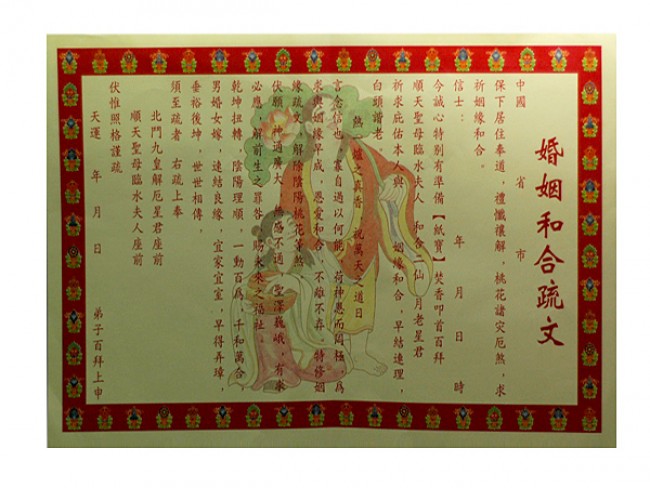 婚姻和合疏文
中國 省 市
保下居住奉道，禮懺禳解，桃花諸灾厄煞，求
祈姻緣和合。
信士： 年 月 日 時
今誠心特別有準備【紙寶】焚香叩首百拜
順天聖母臨水夫人 和合 仙 月老星君
祈求庇佑本人與 姻緣和合，早結連理，
白頭諧老。
熱 爐之真香 祝萬天之道日
言念信 也 自過以何能 荷神恩而 極 為
求與姻緣早成，恩愛和合，不離不弃。特修姻
緣疏文，解除陰陽桃花等煞
伏願 神通廣大， 陽不通，聖澤巍峨，有奉
必應，解前生之罪咎，賜未來之福祉
乾坤扭轉，陰陽理順。一動百為，千和萬合，
男婚女嫁，連結良緣，宜家宜室，早得弄璋，
垂裕後坤，世世相傳。
須至疏者 右疏上奉
北鬥九皇解厄星君座前
順天聖母臨水夫人座前
伏惟照格謹疏
天運 年 月 日 弟子百拜上申